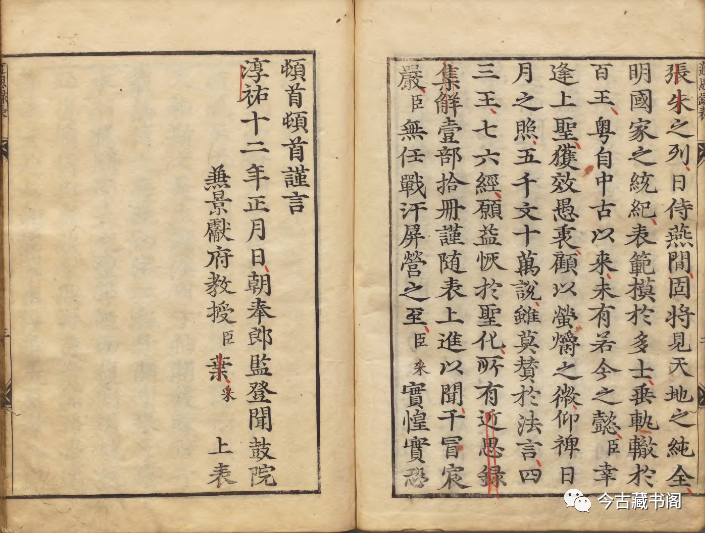 張朱之列日侍燕閒固將見天地之純全
明國家之統紀表範模於多士垂軌轍於
百王粤自中古以來未有若今之懿臣幸
逢上聖獲效愚衷顧以螢爝之微仰裨日
月之照五千文十萬說雖莫贊於法言四
三王七六經願益恢於聖化所有近思録
集解壹部拾册謹随表上進以聞干冒宸
嚴臣無任戰汗屏營之至臣采實惶實恐
頓首頓首謹言
淳祐十二年正月日朝奉郎監登聞鼓院
兼景獻府教授臣葉采上表
今古藏书阁